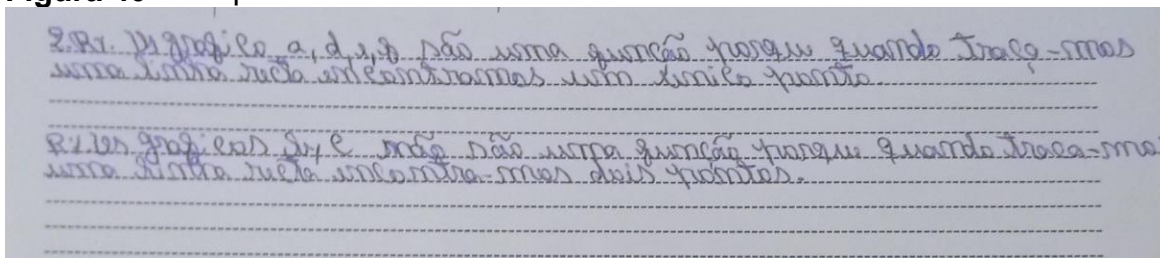 2.R1. Us grafico a, d, e, f são uma função porque quando Traça-mos
uma linha recta encontramos um único ponto
R: Us graficos b, e c não são uma função porque quando traca-mos
uma linha recta encontra-mos dois pontos.